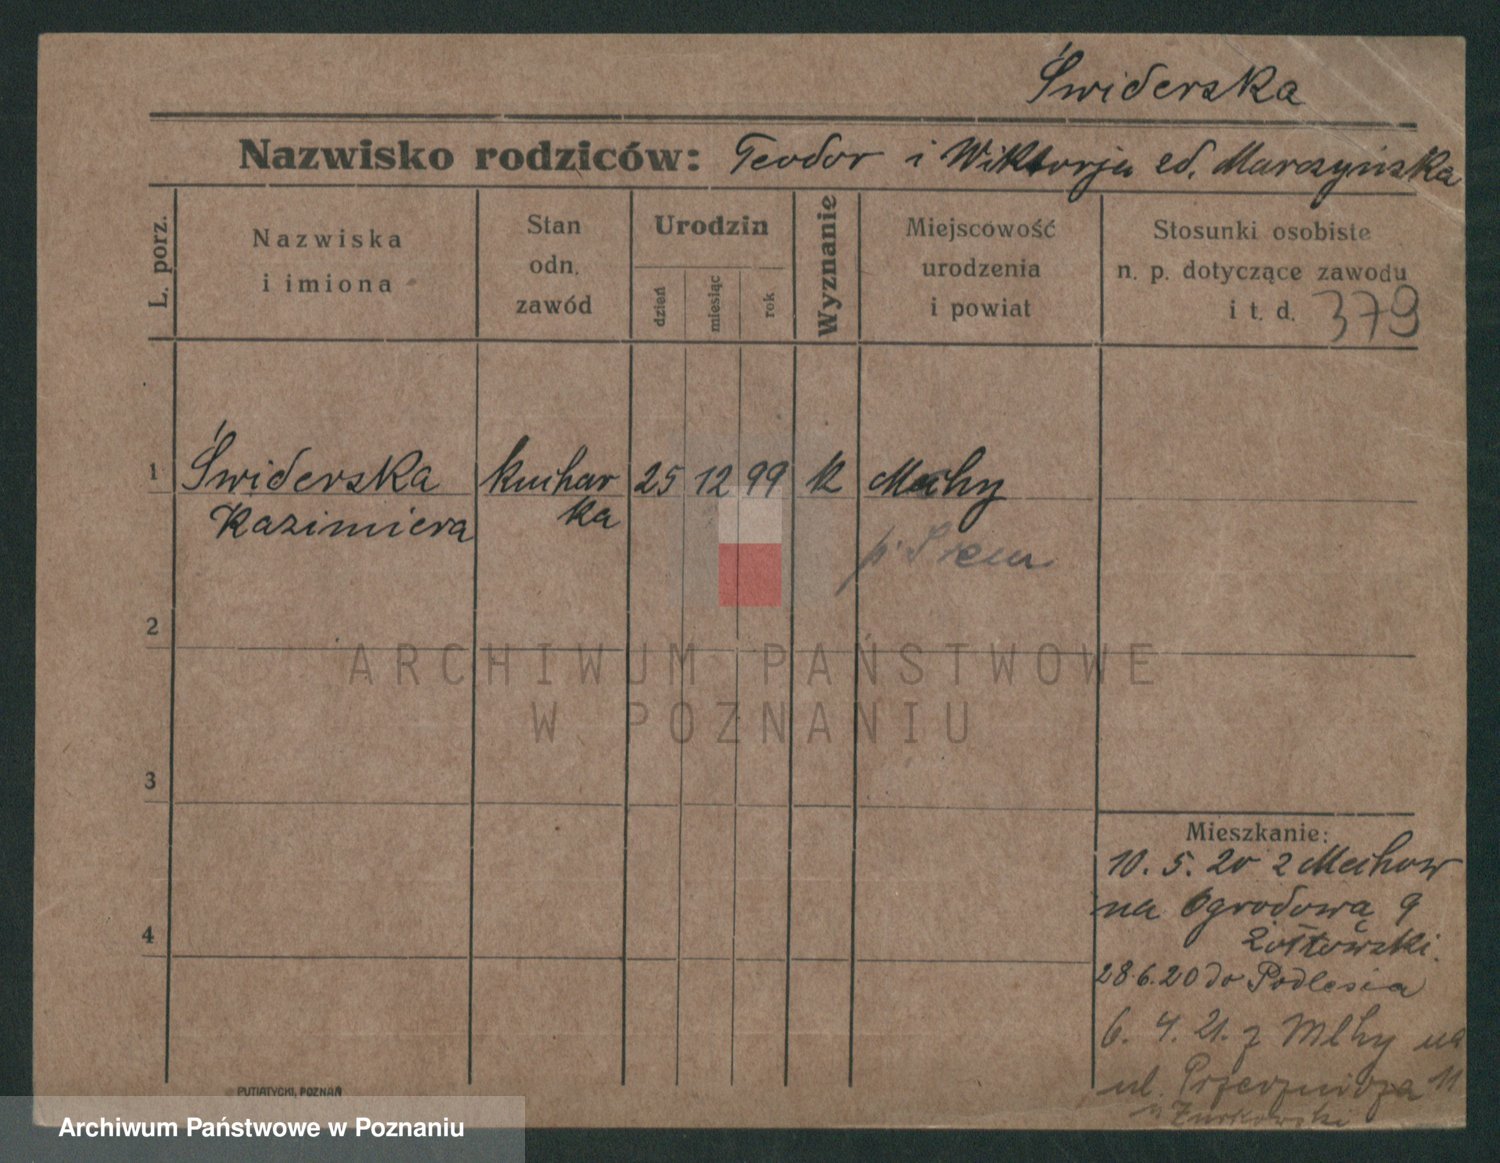 Świderska
Nazwisko rodziców: Teodor i Wiktorja zd. Marszyńska
L. porz.
Nazwiska
i imiona
Stan
odn.
zawód
Urodzin
dzień
miesiąc
rok
Wyznanie
Miejscowość
urodzenia
i powiat
Stosunki osobiste
n. p. dotyczące zawodu
i t. d. 379
1 Świderska kuchar 25 12 99 k Mechy
Kazimiera ka
p. Śrem
2
3
4
ARCHIWUM PAŃSTWOWE
W POZNANIU
Mieszkanie:
10. 5. 20 z Mechow
na Ogrodową 9
Żółtowski.
28.6.20 do Podlesia
6. 4. 21. z
ul. 11
u Żurkowski
PUTIATYCKI, POZNAŃ
Archiwum Państwowe w Poznaniu